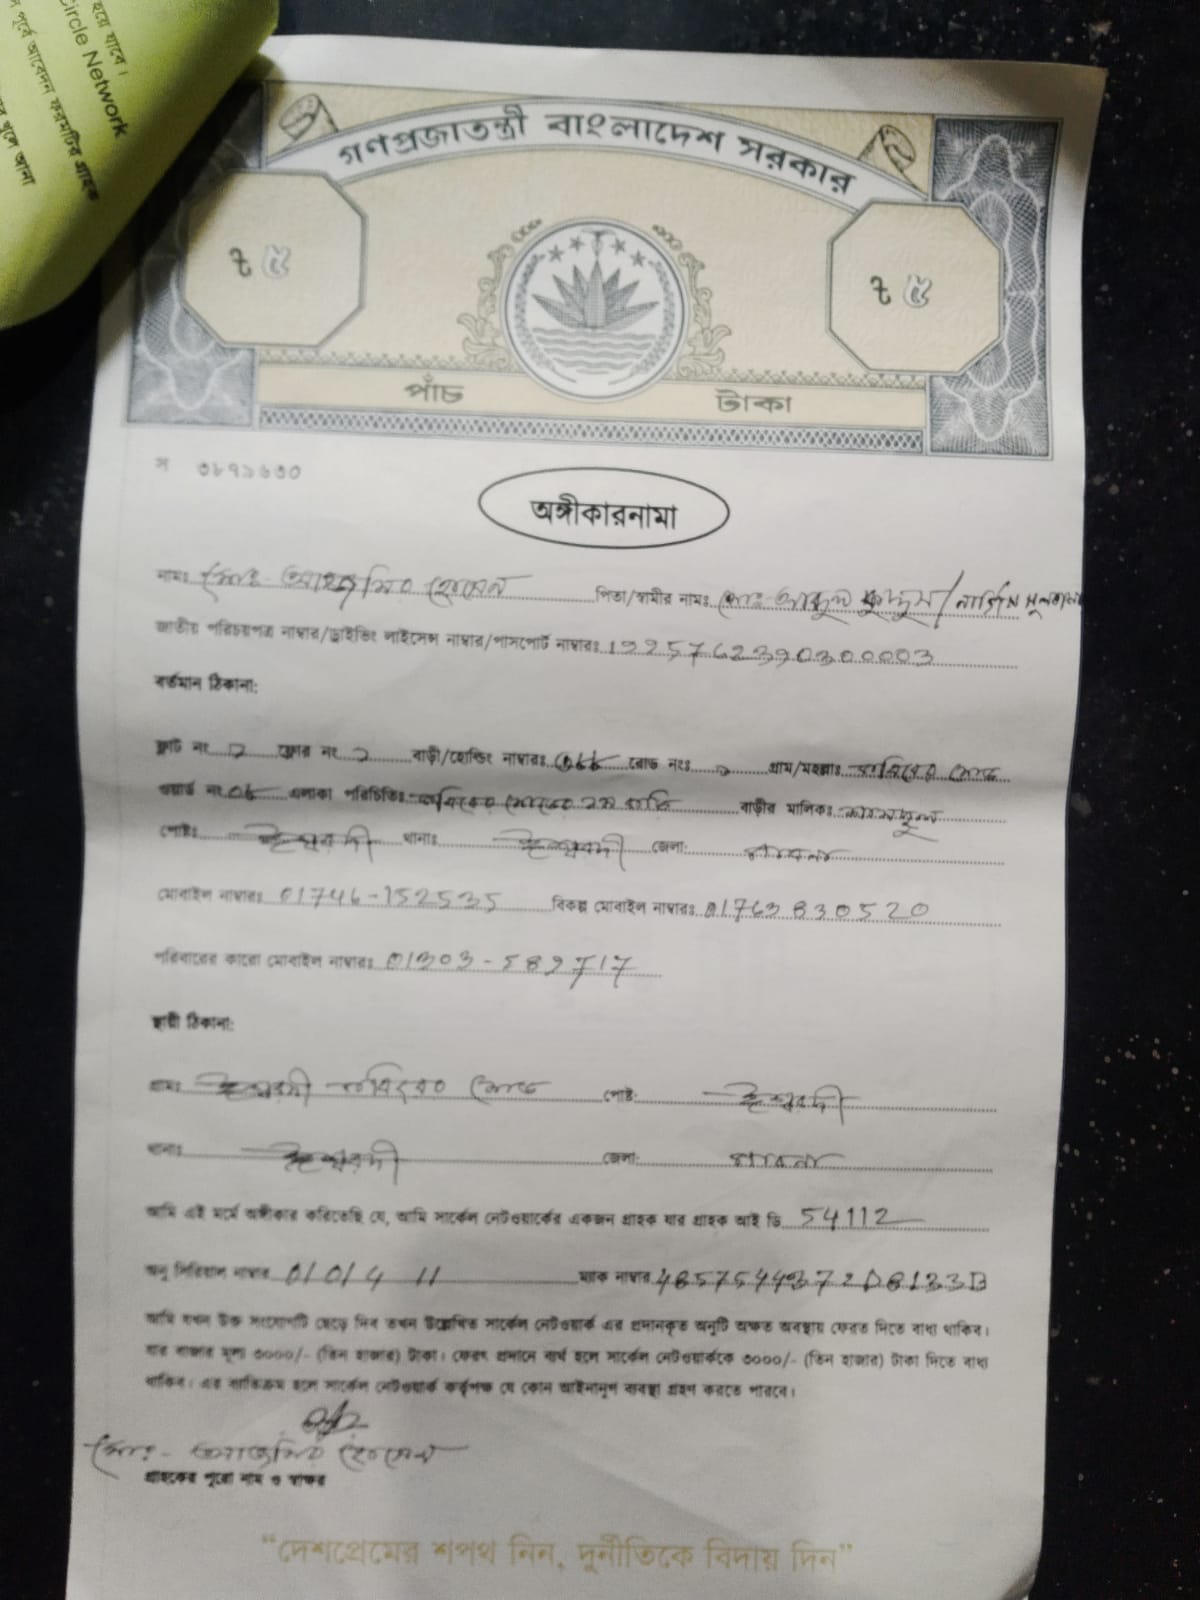 হয়ে যাবে।
Circle Network
পূর্বে আবেদন ফরমটির গ্রাহক
খুলে আনা
গণপ্রজাতন্ত্রী বাংলাদেশ সরকার
ট ৫
ট ৫
পাঁচ টাকা
স ৩৮৭১৬৩০
অঙ্গীকারনামা
নামঃ মোঃ- হোসেন পিতা/স্বামীর নামঃ মোঃ- আব্দুল কুদ্দুস/নার্গিস সুলতানা
জাতীয় পরিচয়পত্র নাম্বার/ড্রাইভিং লাইসেন্স নাম্বার/পাসপোর্ট নাম্বারঃ 19957623903000003
বর্তমান ঠিকানা:
ফ্লাট নং ফ্লোর নং বাড়ী/হোল্ডিং নাম্বারঃ রোড নংঃ গ্রাম/মহল্লাঃ রোড
ওয়ার্ড নং এলাকা পরিচিতিঃ বাড়ীর মালিকঃ
পোষ্টঃ ঈশ্বরদী থানাঃ ঈশ্বরদী জেলা: পাবনা
মোবাইল নাম্বারঃ 01746-152535 বিকল্প মোবাইল নাম্বারঃ 01763830520
পরিবারের কারো মোবাইল নাম্বারঃ 01303-589717
স্থায়ী ঠিকানা:
গ্রামঃ ঈশ্বরদী রোড পোষ্ট: ঈশ্বরদী
থানাঃ ঈশ্বরদী জেলা: পাবনা
আমি এই মর্মে অঙ্গীকার করিতেছি যে, আমি সার্কেল নেটওয়ার্কের একজন গ্রাহক যার গ্রাহক আই ডি 54112
অনু সিরিয়াল নাম্বার 0/0/4 11 ম্যাক নাম্বার
আমি যখন উক্ত সংযোগটি ছেড়ে দিব তখন উল্লেখিত সার্কেল নেটওয়ার্ক এর প্রদানকৃত অনুটি অক্ষত অবস্থায় ফেরত দিতে বাধ্য থাকিব।
যার বাজার মূল্য ৩০০০/- (তিন হাজার) টাকা। ফেরৎ প্রদানে ব্যর্থ হলে সার্কেল নেটওয়ার্ককে ৩০০০/- (তিন হাজার) টাকা দিতে বাধ্য
থাকিব। এর ব্যতিক্রম হলে সার্কেল নেটওয়ার্ক কর্তৃপক্ষ যে কোন আইনানুগ ব্যবস্থা গ্রহণ করতে পারবে।
মোঃ- হোসেন
গ্রাহকের পুরো নাম ও স্বাক্ষর
“দেশপ্রেমের শপথ নিন, দুর্নীতিকে বিদায় দিন”